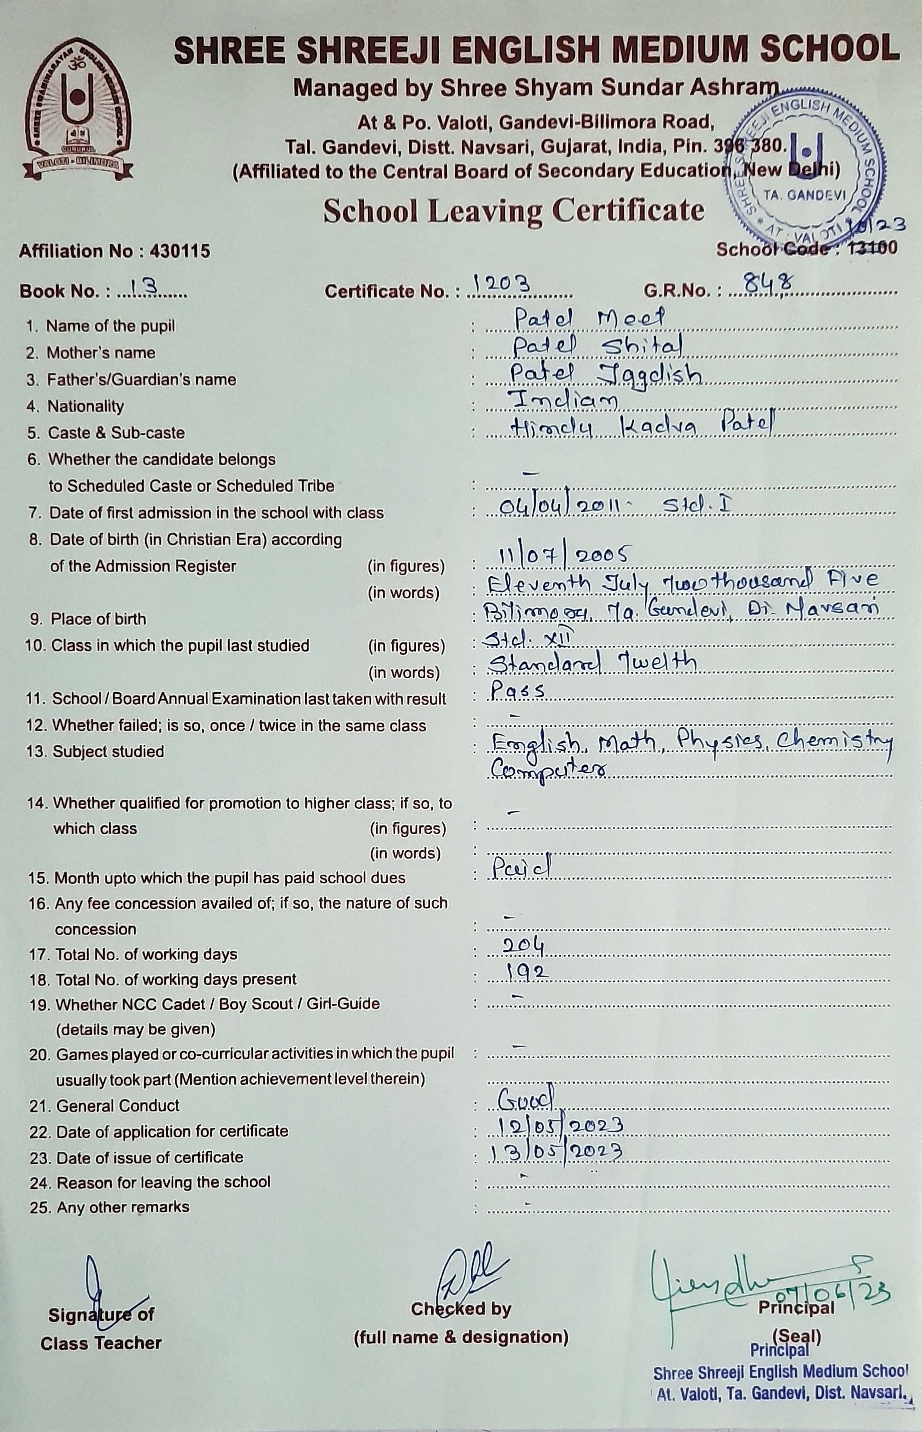 SHREE SHREEJI ENGLISH MEDIUM SCHOOL
Managed by Shree Shyam Sundar Ashram
At & Po. Valoti, Gandevi-Bilimora Road,
Tal. Gandevi, Distt. Navsari, Gujarat, India, Pin. 396 380.
(Affiliated to the Central Board of Secondary Education, New Delhi)
VALOTI - BILIMORA
SHREE SHREEJI ENGLISH MEDIUM SCHOOL
TA. GANDEVI
AT : VALOTI
School Leaving Certificate
Affiliation No : 430115 School Code : 13100
Book No. : 13 Certificate No. : 1203 G.R.No. : 848
1. Name of the pupil : Patel Meet
2. Mother's name : Patel Shital
3. Father's/Guardian's name : Patel Jagdish
4. Nationality : Indian
5. Caste & Sub-caste : Hindu Kadva Patel
6. Whether the candidate belongs
to Scheduled Caste or Scheduled Tribe : -
7. Date of first admission in the school with class : 04/04/2011 - Std. I
8. Date of birth (in Christian Era) according
of the Admission Register (in figures) : 11/07/2005
(in words) : Eleventh July Two thousand Five
9. Place of birth : Bilimora, Ta. Gandevi, Di. Navsari
10. Class in which the pupil last studied (in figures) : Std. XII
(in words) : Standard Twelth
11. School / Board Annual Examination last taken with result : Pass
12. Whether failed; is so, once / twice in the same class : -
13. Subject studied : English, Math, Physics, Chemistry
Computer
14. Whether qualified for promotion to higher class; if so, to
which class (in figures) : -
(in words) :
15. Month upto which the pupil has paid school dues : Paid
16. Any fee concession availed of; if so, the nature of such
concession : -
17. Total No. of working days : 204
18. Total No. of working days present : 192
19. Whether NCC Cadet / Boy Scout / Girl-Guide : -
(details may be given)
20. Games played or co-curricular activities in which the pupil : -
usually took part (Mention achievement level therein)
21. General Conduct : Good
22. Date of application for certificate : 12/05/2023
23. Date of issue of certificate : 13/05/2023
24. Reason for leaving the school : -
25. Any other remarks : -
07/06/23
Signature of
Class Teacher
Checked by
(full name & designation)
Principal
(Seal)
Principal
Shree Shreeji English Medium School
At. Valoti, Ta. Gandevi, Dist. Navsari.